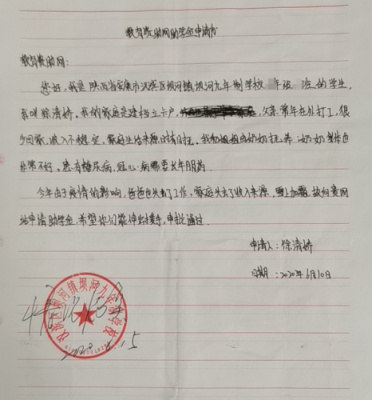 教育救助网助学金申请书
教育救助网：
您好，我是陕西省安康市汉滨区坝河镇坝河九年制学校 年级 班的学生，
我叫徐清娇。我们家庭是建档立卡户，父亲常年在外打工，很
少回家，收入不稳定，家庭生活来源
奶奶身体也
非常不好，患有糖尿病，冠心病需要长年服药。
今年由于疫情的影响，爸爸也失去了工作，家庭失去了收入来源，雪上加霜，故向贵网
站申请助学金，希望你们能伸出援手，审批通过。
申请人：徐清娇
日期：2020年6月10日
坝河镇坝河九年制学校